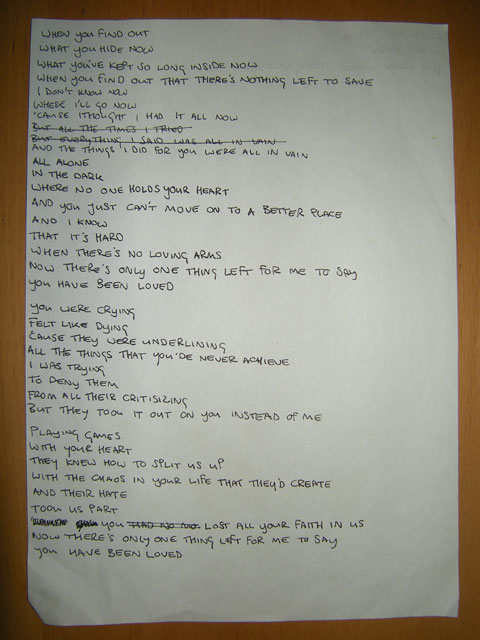 WHEN YOU FIND OUT
WHAT YOU HIDE NOW
WHAT YOU'VE KEPT SO LONG INSIDE NOW
WHEN YOU FIND OUT THAT THERE'S NOTHING LEFT TO SAVE
I DON'T KNOW NOW
WHERE I'LL GO NOW
'CAUSE I THOUGHT I HAD IT ALL NOW
BUT ALL THE TIMES I TRIED
BUT EVERYTHING I SAID WAS ALL IN VAIN
AND THE THINGS I DID FOR YOU WERE ALL IN VAIN
ALL ALONE
IN THE DARK
WHERE NO ONE HOLDS YOUR HEART
AND YOU JUST CAN'T MOVE ON TO A BETTER PLACE
AND I KNOW
THAT IT'S HARD
WHEN THERE'S NO LOVING ARMS
NOW THERE'S ONLY ONE THING LEFT FOR ME TO SAY
YOU HAVE BEEN LOVED
YOU WERE CRYING
FELT LIKE DYING
'CAUSE THEY WERE UNDERLINING
ALL THE THINGS THAT YOU'DE NEVER ACHIEVE
I WAS TRYING
TO DENY THEM
FROM ALL THEIR CRITISIZING
BUT THEY TOOK IT OUT ON YOU INSTEAD OF ME
PLAYING GAMES
WITH YOUR HEART
THEY KNEW HOW TO SPLIT US UP
WITH THE CHAOS IN YOUR LIFE THAT THEY'D CREATE
AND THEIR HATE
TOOK US PART
YOU HAD NO MO LOST ALL YOUR FAITH IN US
NOW THERE'S ONLY ONE THING LEFT FOR ME TO SAY
YOU HAVE BEEN LOVED